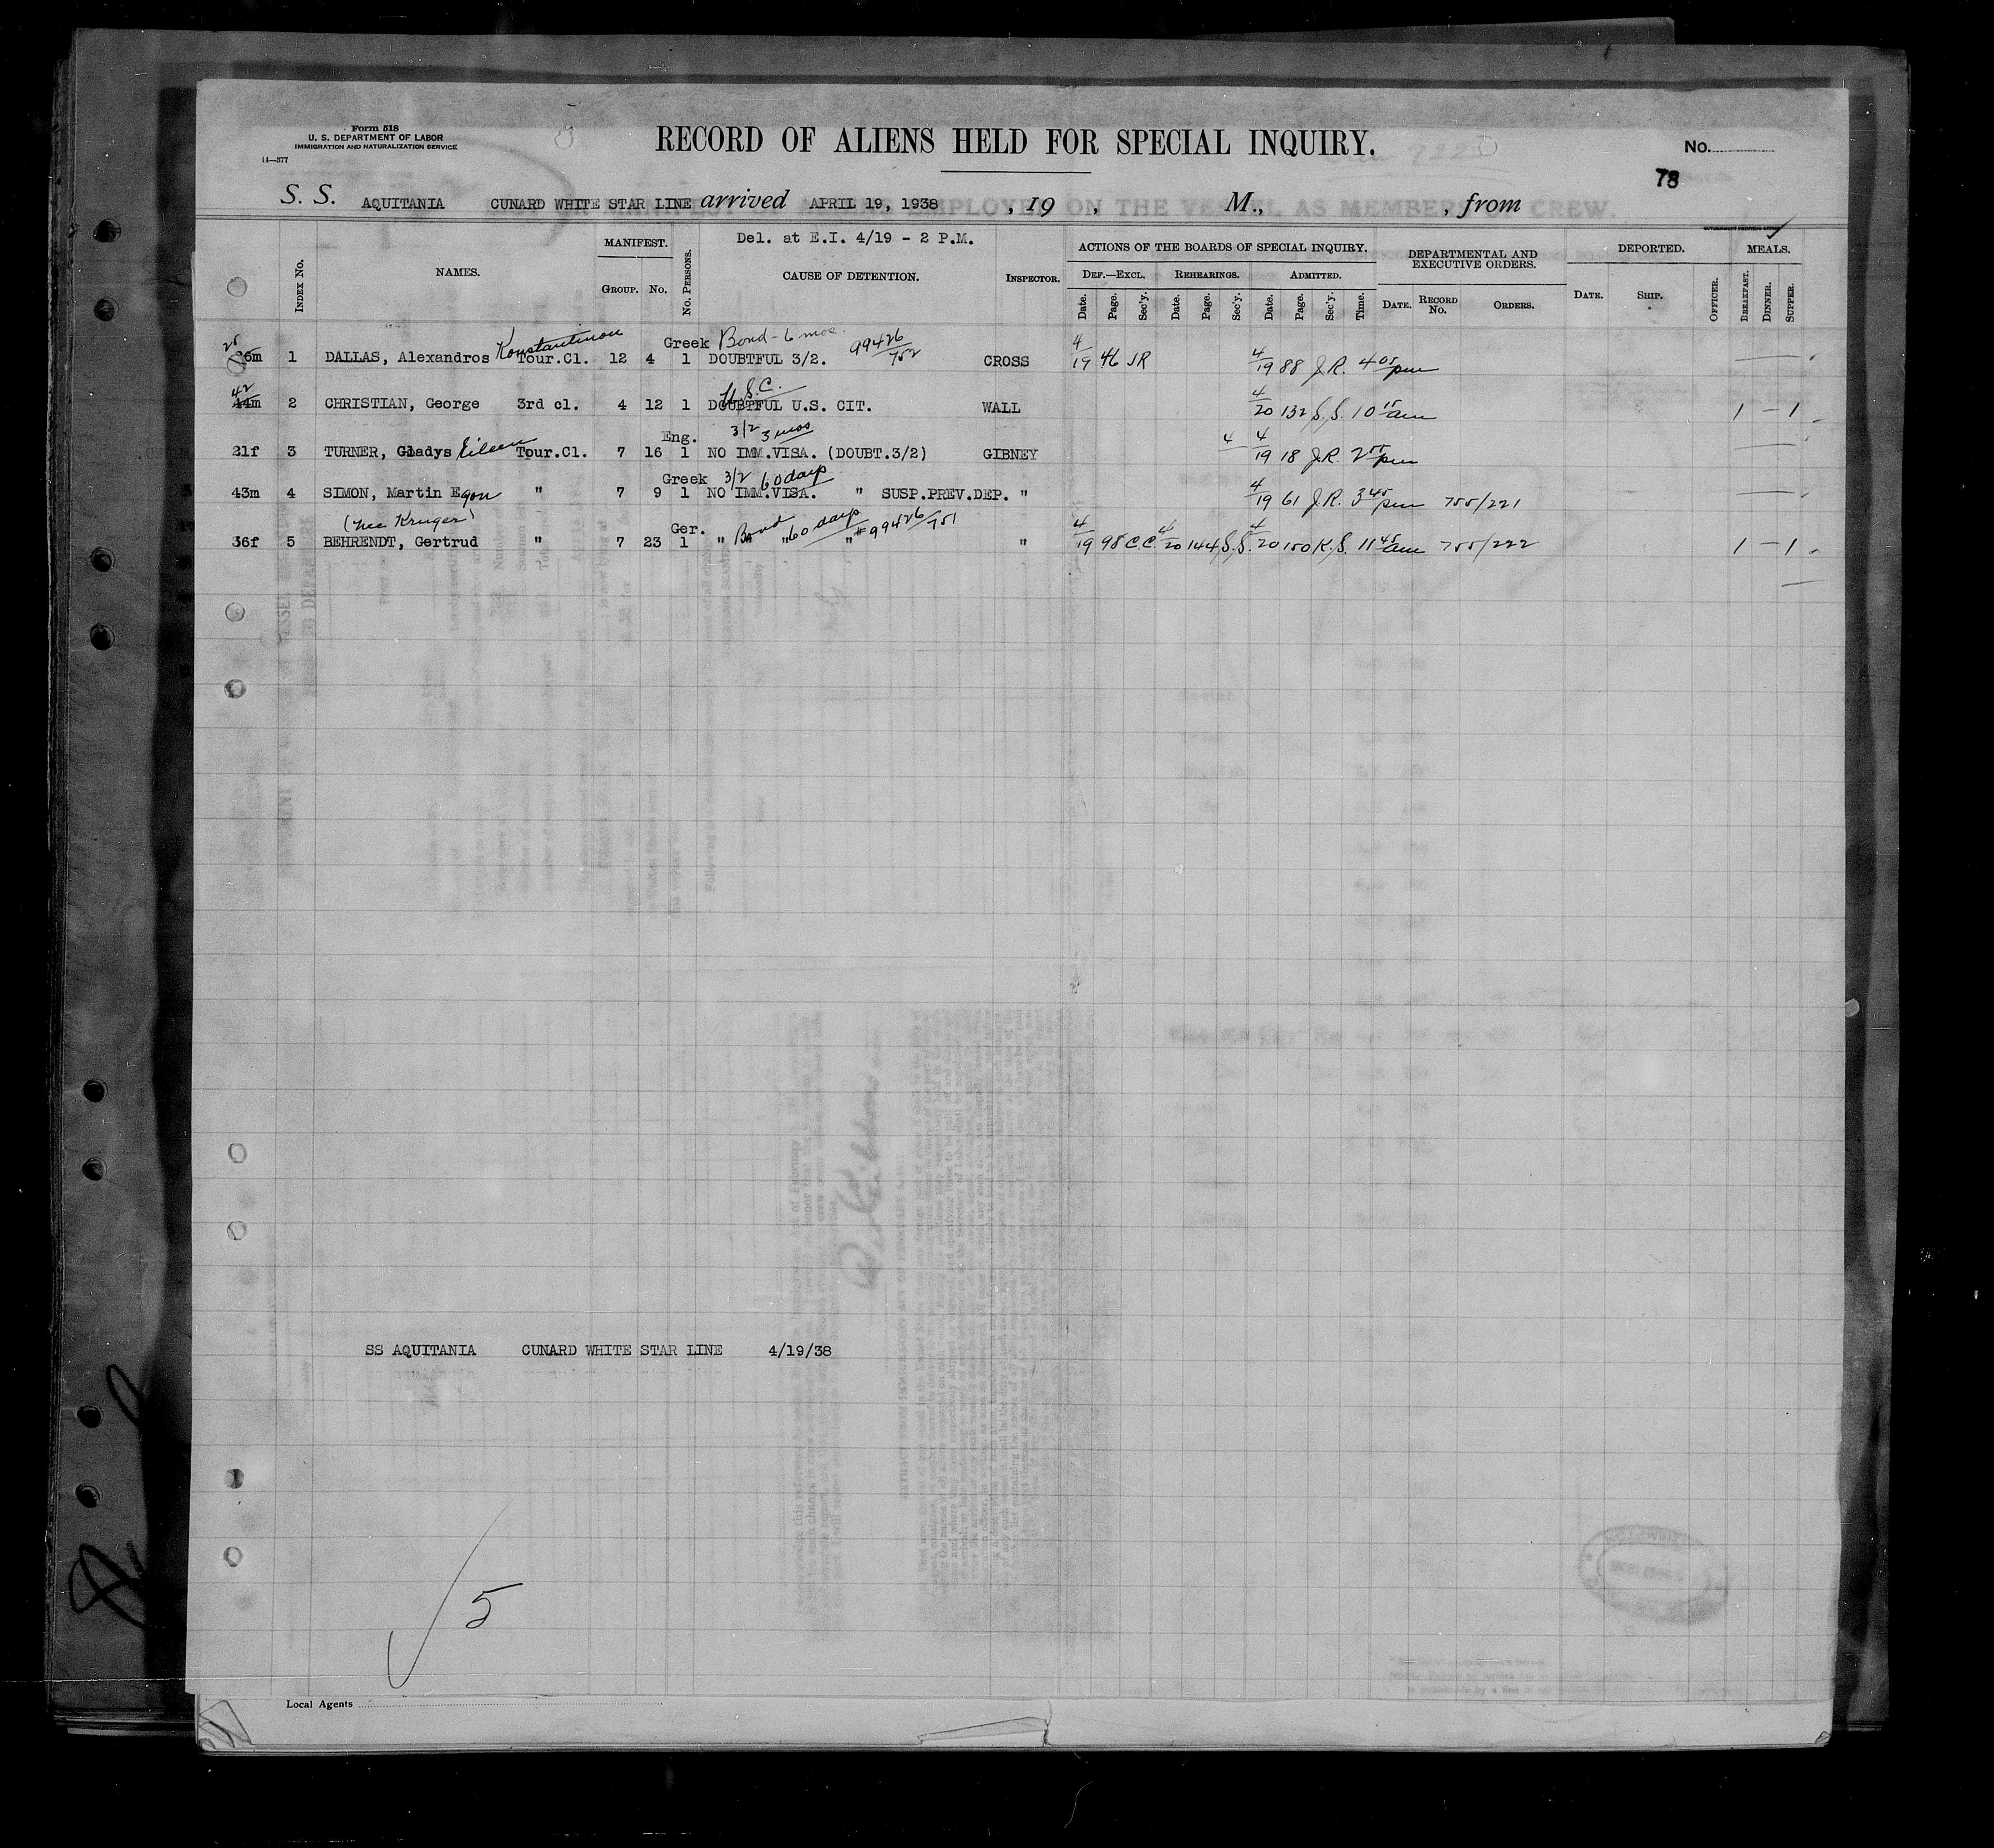 Form 518
U. S. DEPARTMENT OF LABOR
IMMIGRATION AND NATURALIZATION SERVICE
14—377
RECORD OF ALIENS HELD FOR SPECIAL INQUIRY.
No.
78
S. S. AQUITANIA CUNARD WHITE STAR LINE arrived APRIL 19, 1938 , 19 , M., , from
Del. at E.I. 4/19 - 2 P.M.
INDEX No. NAMES. MANIFEST. GROUP. No. No. PERSONS. CAUSE OF DETENTION. INSPECTOR. ACTIONS OF THE BOARDS OF SPECIAL INQUIRY. DEPARTMENTAL AND EXECUTIVE ORDERS. DEPORTED. MEALS.
DEF.—EXCL. REHEARINGS. ADMITTED.
Date. Page. Sec'y. Date. Page. Sec'y. Date. Page. Sec'y. Time. DATE. RECORD No. ORDERS. DATE. SHIP. OFFICER. BREAKFAST. DINNER. SUPPER.
25 Konstantinou Greek Bond - 6 mos. 99426/752
26m 1 DALLAS, Alexandros Tour.Cl. 12 4 1 DOUBTFUL 3/2. CROSS 4/19 46 JR 4/19 88 J.R. 4 05 pm
42 U.S.C.
44m 2 CHRISTIAN, George 3rd cl. 4 12 1 DOUBTFUL U.S. CIT. WALL 4/20 132 S.S. 10 15 am 1 — 1
Eng. 3/2 3 mos
21f 3 TURNER, Gladys Eileen Tour.Cl. 7 16 1 NO IMM.VISA. (DOUBT.3/2) GIBNEY 4 4/19 18 J.R. 2 55 pm
Greek 3/2 60 days
43m 4 SIMON, Martin Egon " 7 9 1 NO IMM.VISA. " SUSP.PREV.DEP. " 4/19 61 J.R. 3 45 pm 755/221
(nee Kruger) Ger. Bond 60 days #99426/751
36f 5 BEHRENDT, Gertrud " 7 23 1 " " " " " 4/19 98 C.C. 4/20 144 S.S. 4/20 150 K.S. 11 45 am 755/222 1 — 1
SS AQUITANIA CUNARD WHITE STAR LINE 4/19/38
5
Local Agents